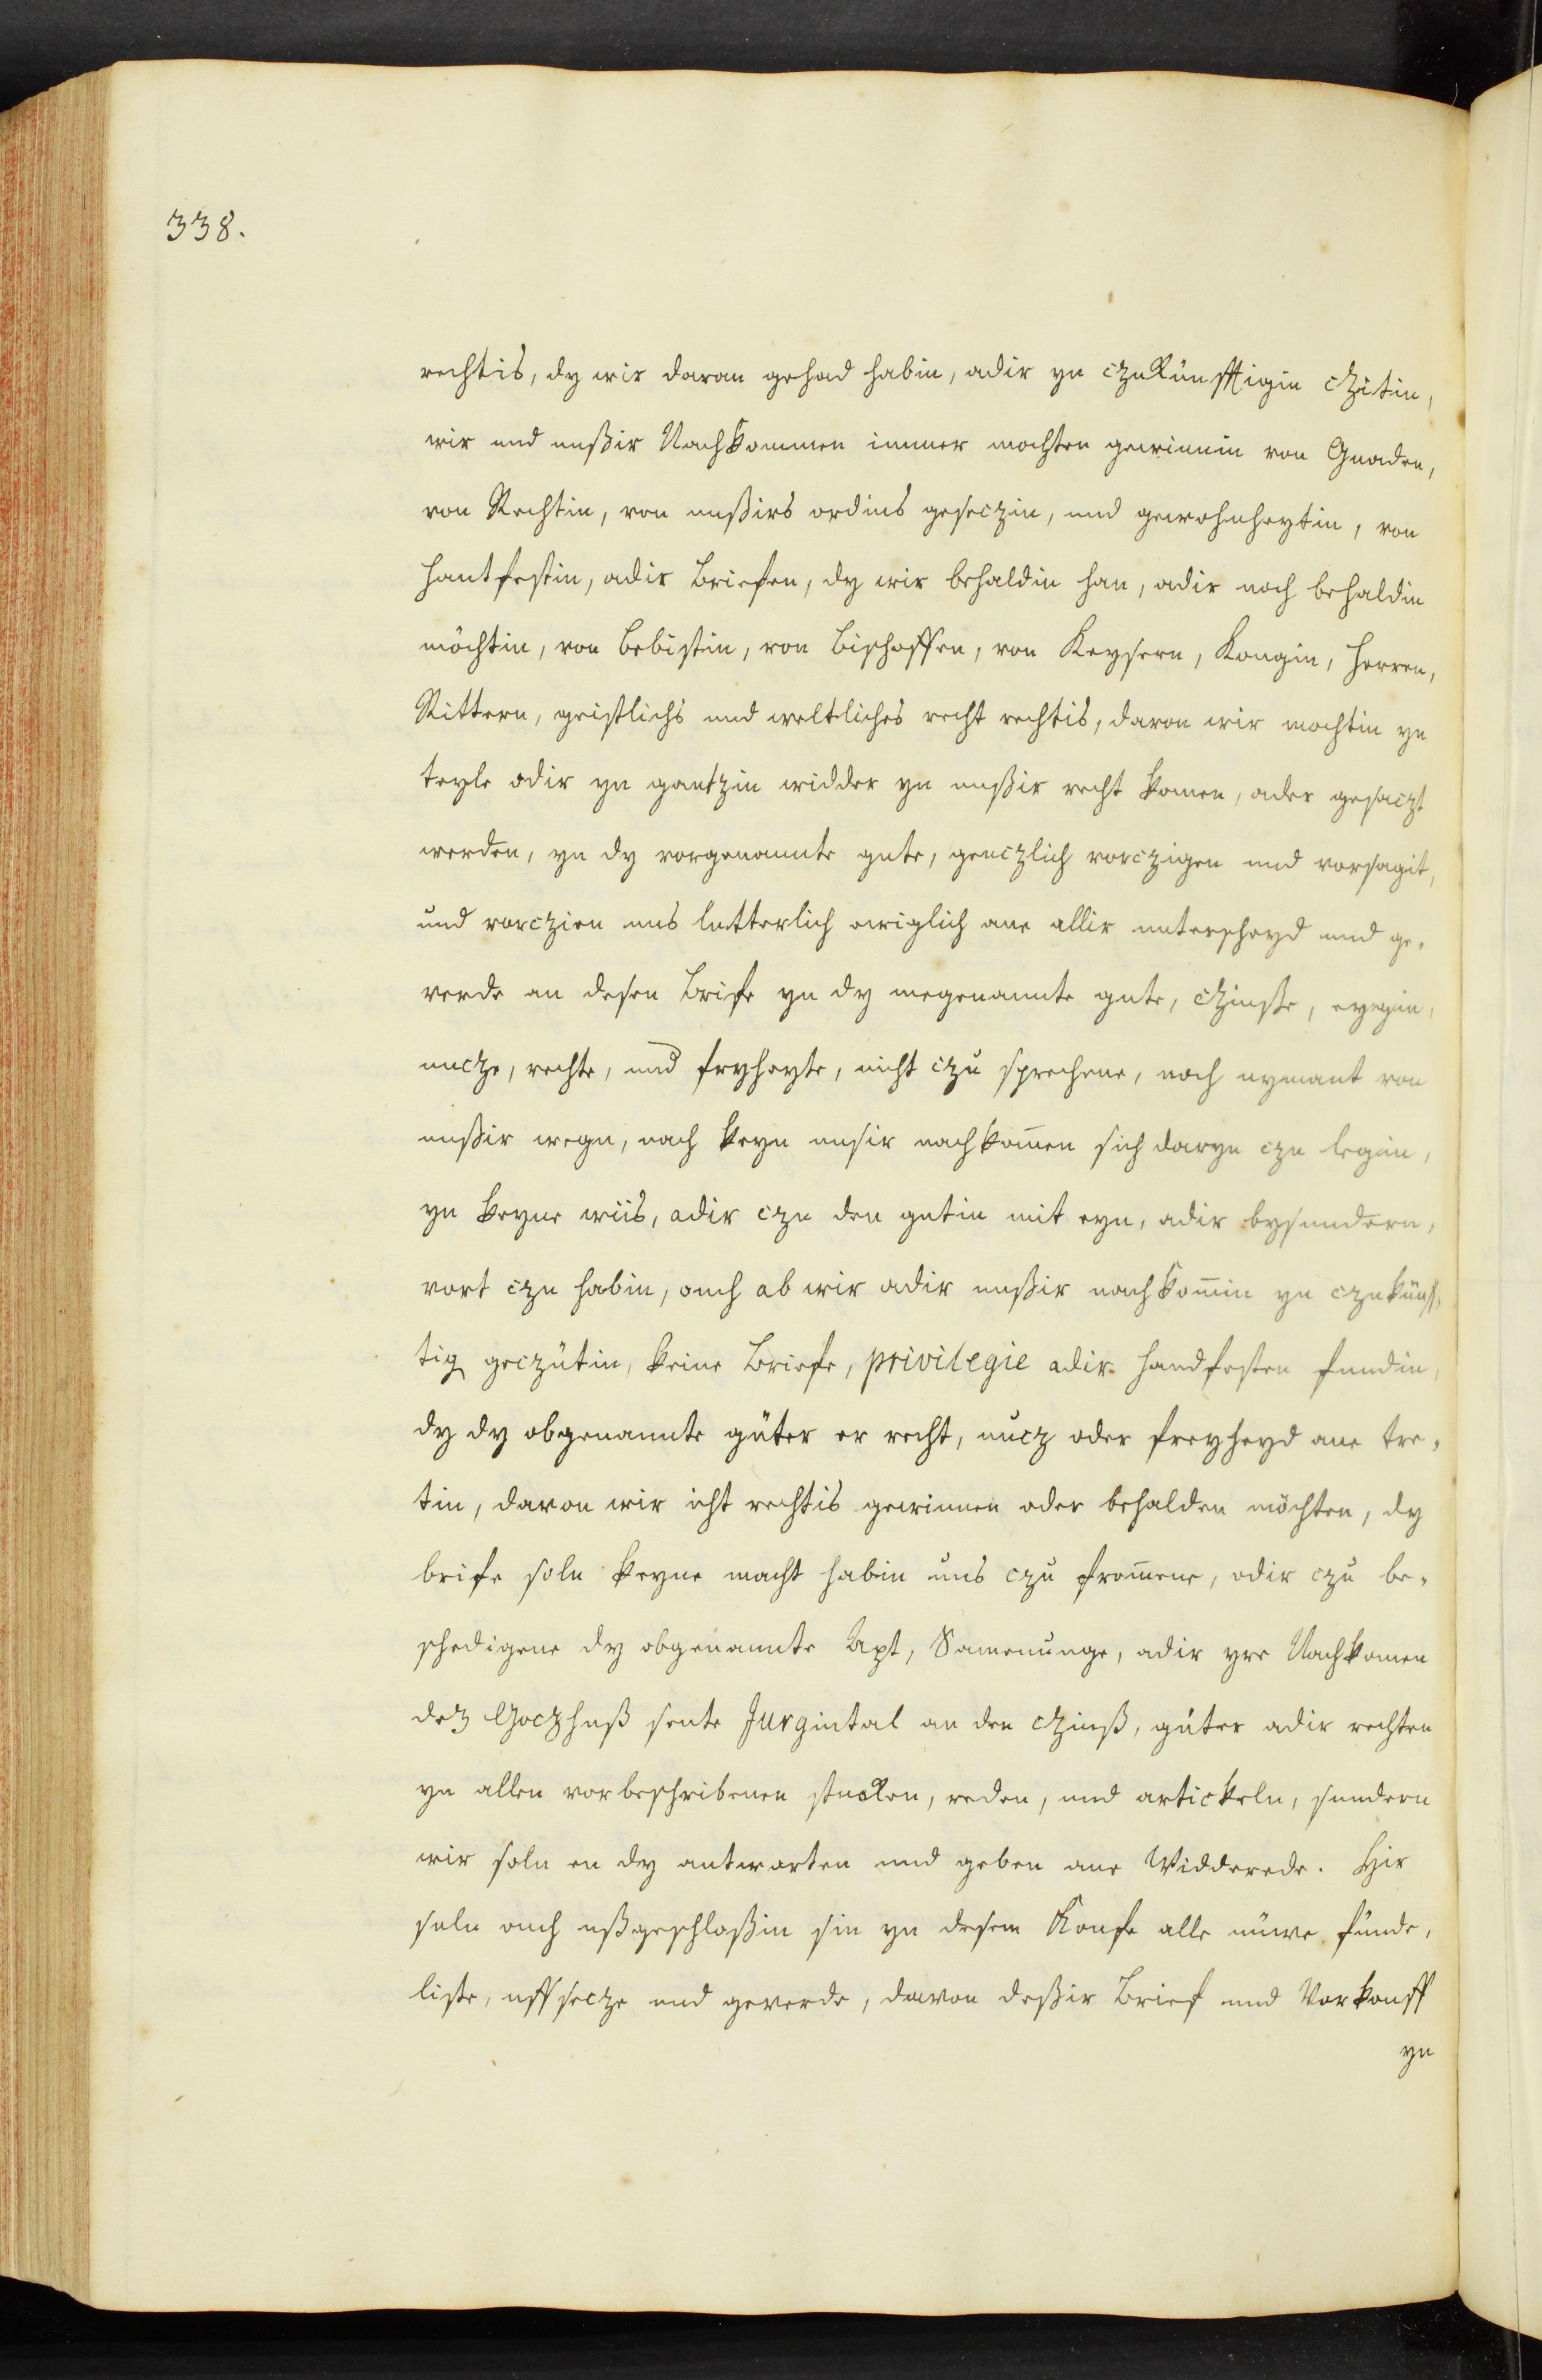 338.
rechtis, dy wir daran gehad habin, adir yn czukünfftigin cziten,
wir und unßir Nachkommen immer mochten gewinnin von Gnaden,
von Rechtin, von unßirs ordins geseczin, und gewohnheytin, von
hantfestin, adir Briefen, dy wir behaldin han, adir noch behaldin
möchtin, von bebistin, von bischoffen, von Keysern, Kongin, herren,
Rittern, geistlichs und weltliches recht rechtis, davon wir mochtin yn
teyle adir yn gantzin widder yn unßir recht komen, ader gesaczt
werden, yn dy vorgenannte gute, genczlich vorczigen und vorsagit,
und vorczien uns lutterlich ewiglich ane allir unterscheyd und ge-
verde an desen Brife yn dy megenannte gute, czinße, eygin,
nucze, rechte, und fryheyte, nicht czu sprechene, noch nymant von
unßir wegn, nach keyn unsir nachkom̅en sich daryn czu legin,
yn keyne wiis, adir czu den gutin mit eyn, adir bysundern,
vort czu habin, ouch ab wir adir unßir nachkom̅in yn czukünff-
tig geczütin, keine Briefe, privilegie adir handfesten fundin,
dy dy obgenannte güter er recht, nucz oder freyheyd ane tre-
tin, davon wir icht rechtis gewinnen oder behalden möchten, dy
brife soln keyne macht habin uns czu from̅ene, odir czu be-
schedigene dy obgenannte Apt, Samenunge, adir yre Nachkomen
dez Goczhuß sente Jurgintal an den czinß, güter adir rechten
yn allen vorbeschribenen stucken, reden, und artickeln, sundern
wir soln en dy antworten und geben ane Widderede. Hir
soln ouch ußgeschloßin sin yn desem Koufe alle nüwe fünde,
liste, uffsecze und geverde, davon deßir Brief und Vorkouff
yn